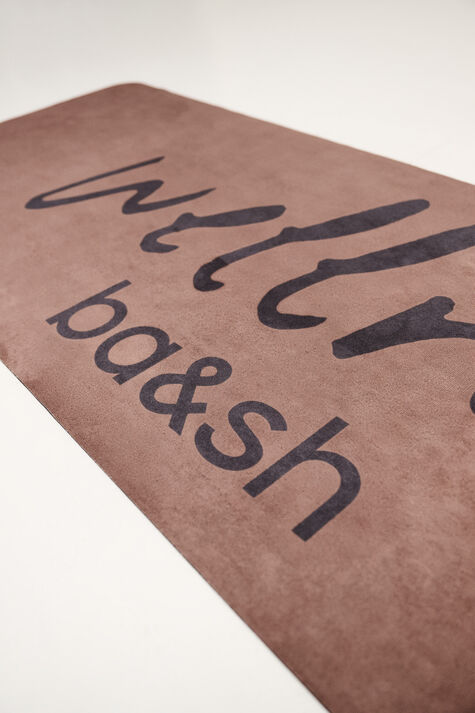 welln
ba&sh